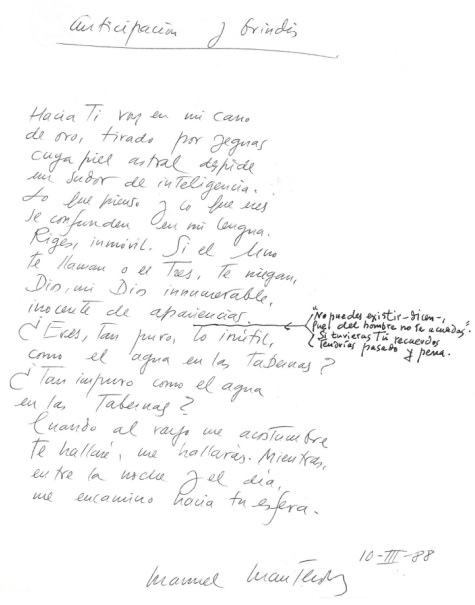 Anticipación y brindis
Hacia Ti voy en mi carro
de oro, tirado por yeguas
cuya piel astral despide
un sudor de inteligencia.
Lo que pienso y lo que eres
se confunden en mi lengua.
Riges, inmóvil. Si el Uno
te llaman o el Tres, te niegan,
Dios, mi Dios innumerable,
inocente de apariencias.
"No puedes existir -dicen-,
pues del hombre no te acuerdas".
Si tuvieras Tú recuerdos
tendrías pasado y pena.
¿Eres, tan puro, lo inútil,
como el agua en las Tabernas?
¿Tan impuro como el agua
en las Tabernas?
Cuando al rayo me acostumbre
te hallaré, me hallarás. Mientras,
entre la noche y el día,
me encamino hacia tu esfera.
10-III-88
Manuel Mantero